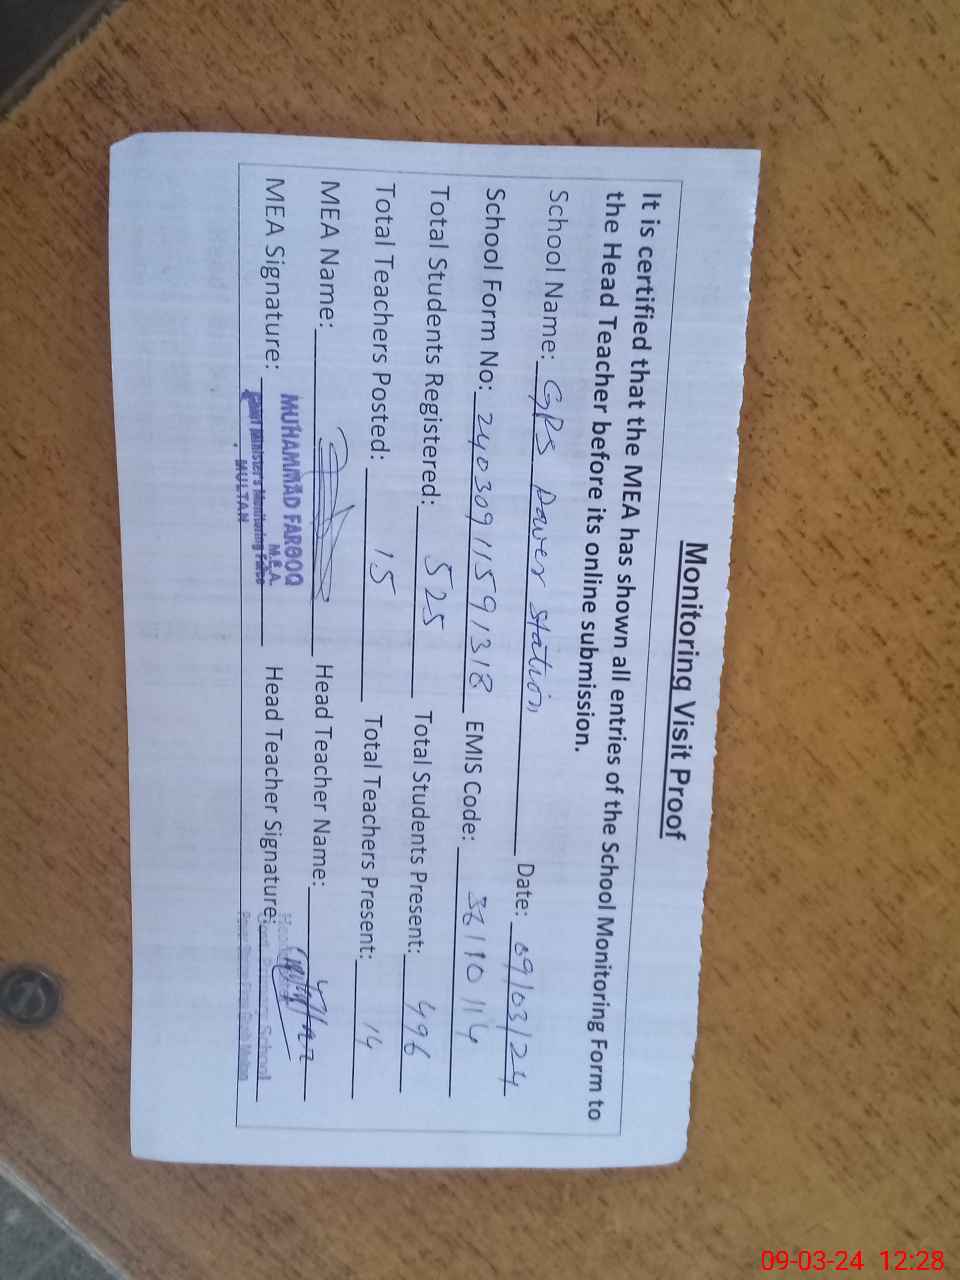 Monitoring Visit Proof
It is certified that the MEA has shown all entries of the School Monitoring Form to
the Head Teacher before its online submission.
School Name: GPS Power station Date: 09/03/24
School Form No: 24030911591318 EMIS Code: 36110114
Total Students Registered: 525 Total Students Present: 496
Total Teachers Posted: 15 Total Teachers Present: 14
MEA Name: Head Teacher Name:
MEA Signature: Head Teacher Signature:
MUHAMMAD FAROOQ
M.E.A.
Chief Minister's Monitoring Force
MULTAN
School
09-03-24 12:28